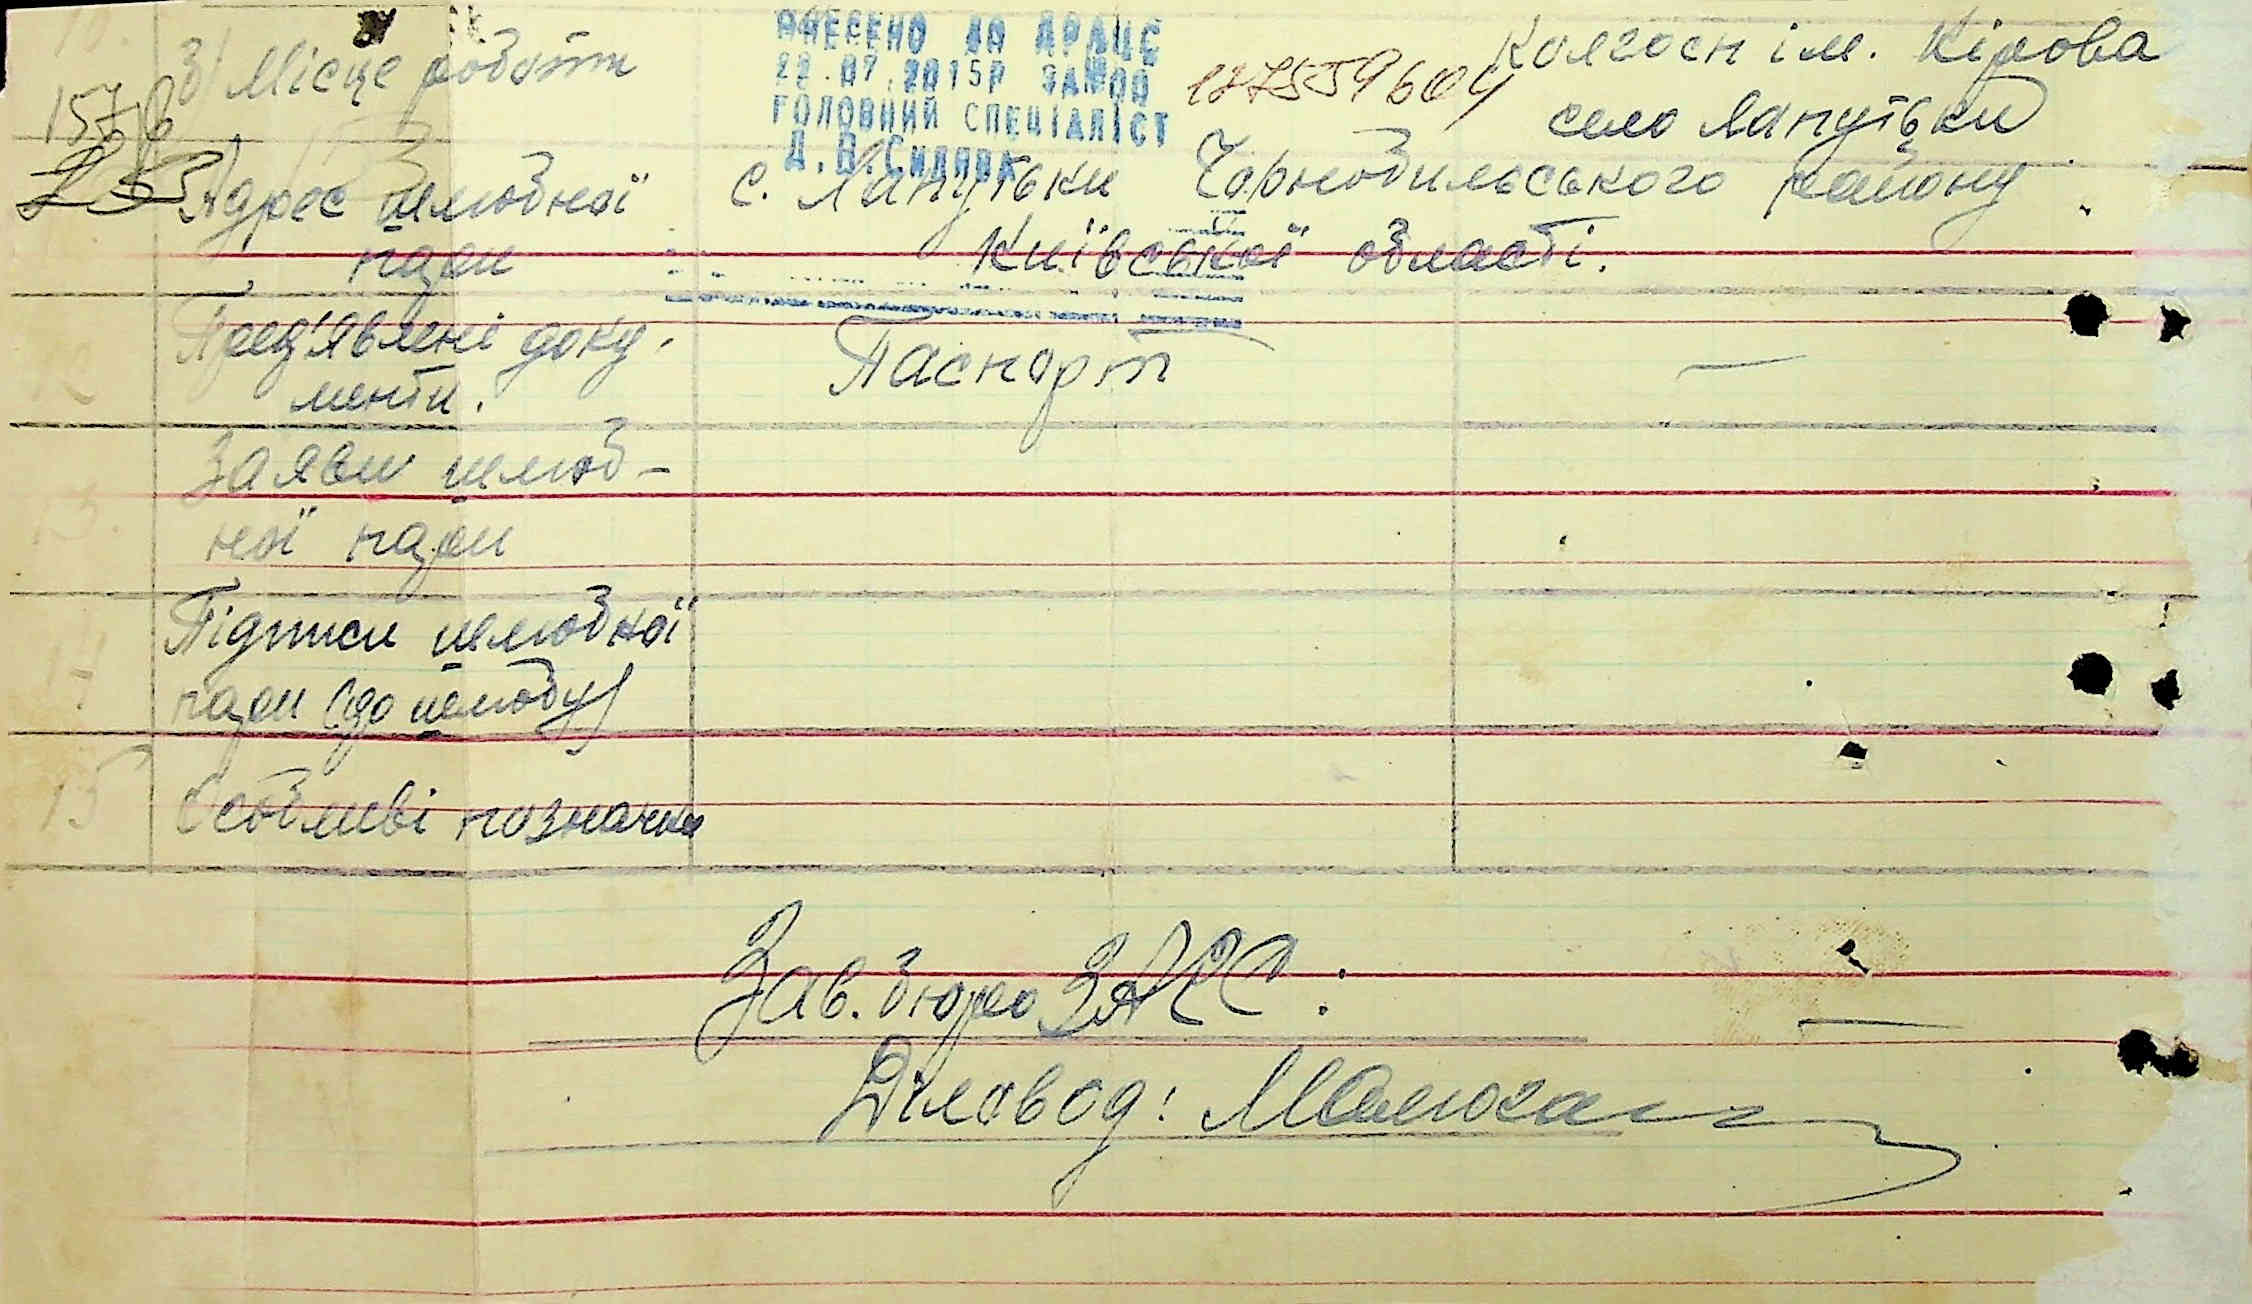 10.
3) Місце роботи
ВНЕСЕНО ДО ДРАЦС
22.07.2015Р ЗА№00
ГОЛОВНИЙ СПЕЦІАЛІСТ
Колгосп ім. Кірова
село Лапутьки
157
Адрес шлюбної
пари
с. Лапутьки Чорнобильського району
Київської області.
12
Пред'явлені доку-
менти.
Паспорт
—
13.
Заяви шлюб-
ної пари
14
Підписи шлюбної
пари (до шлюбу)
15
Особливі позначки
Зав. бюро ЗАГС:
—
Діловод: